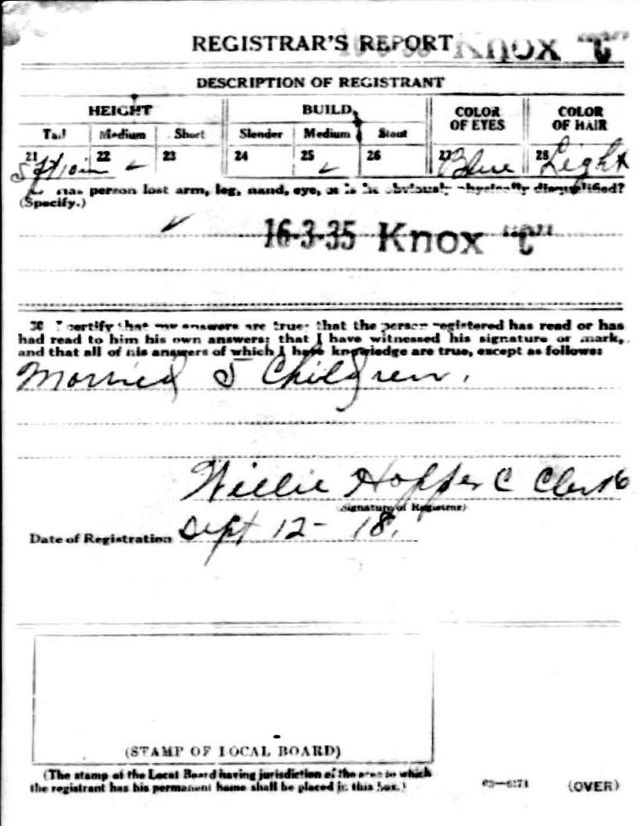 REGISTRAR'S REPORT Knox "C"
DESCRIPTION OF REGISTRANT
HEIGHT BUILD COLOR OF EYES COLOR OF HAIR
Tall Medium Short Slender Medium Stout
21 5ft 10in 22 ✓ 23 24 25 ✓ 26 27 Blue 28 Light
Has person lost arm, leg, hand, eye, or is he obviously physically disqualified?
(Specify.)
✓
16-3-35 Knox "C"
30 I certify that my answers are true; that the person registered has read or has
had read to him his own answers; that I have witnessed his signature or mark,
and that all of his answers of which I have knowledge are true, except as follows:
Married 5 Children.
Willie Hopper C Clerk
(Signature of Registrar)
Date of Registration Sept 12 - 18.
(STAMP OF LOCAL BOARD)
(The stamp of the Local Board having jurisdiction of the area in which
the registrant has his permanent home shall be placed in this box.)
03—6171 (OVER)